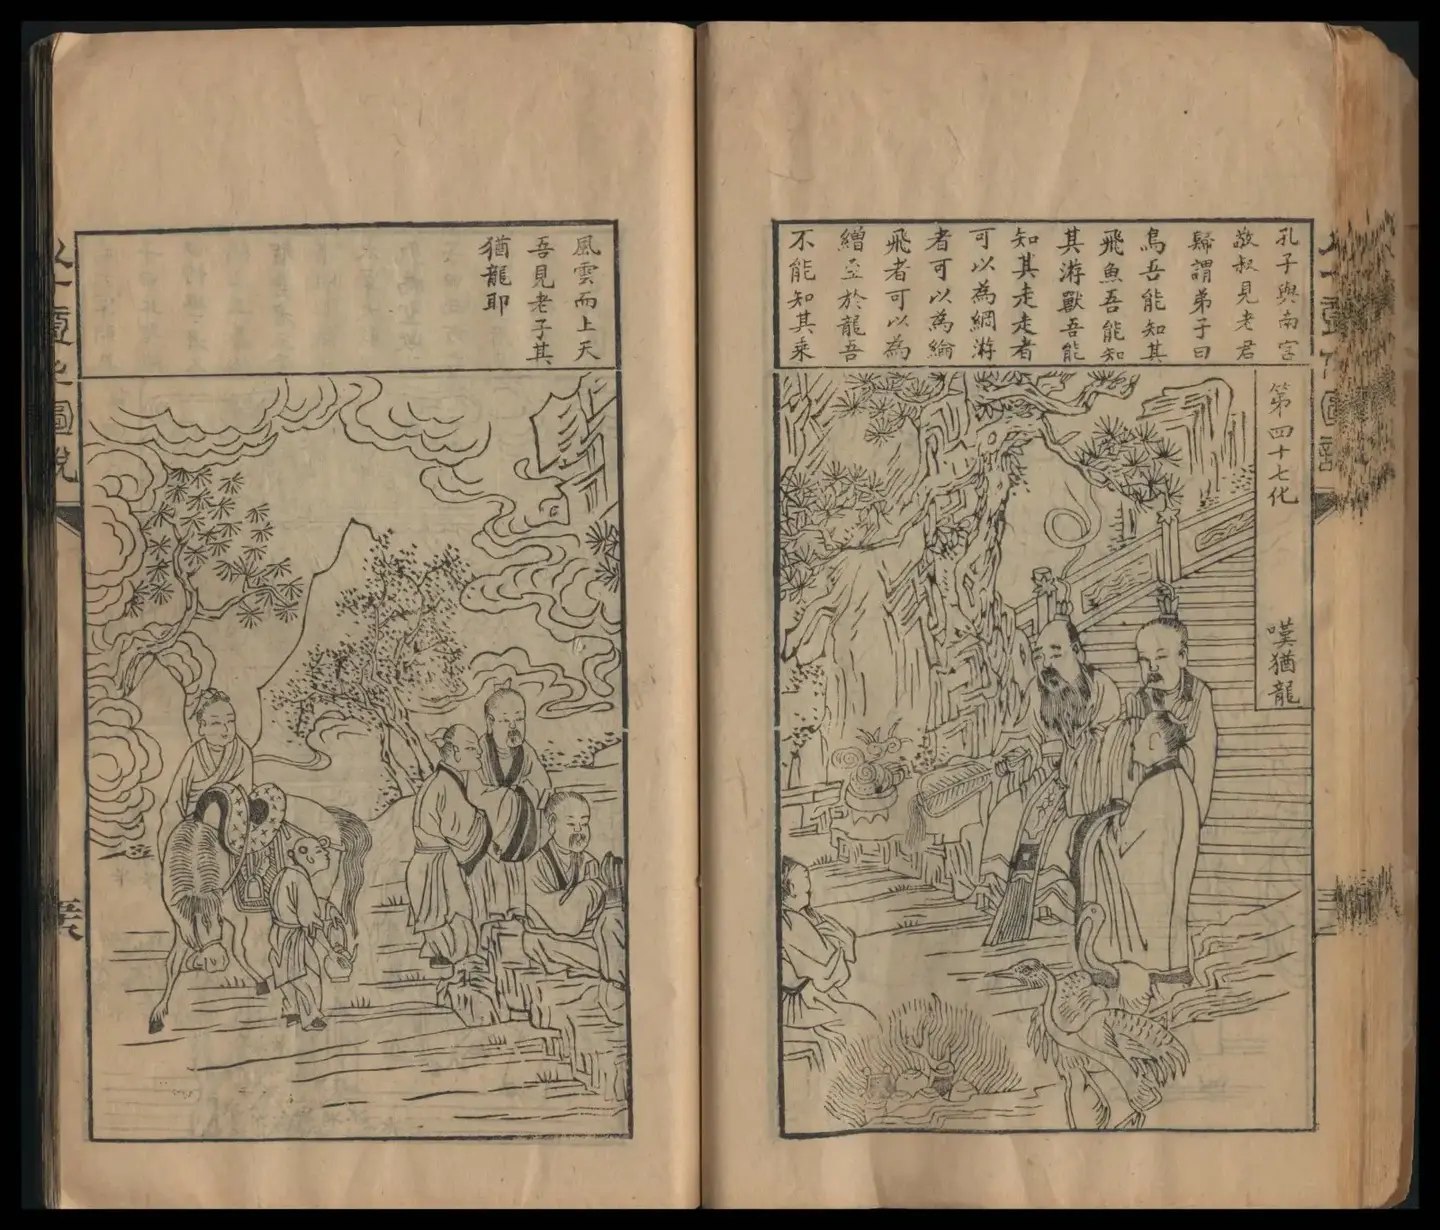 孔子與南宮
敬叔見老君
歸謂弟子曰
鳥吾能知其
飛魚吾能知
其游獸吾能
知其走走者
可以為網游
者可以為綸
飛者可以為
繒至於龍吾
不能知其乘
第四十七化
嘆猶龍
風雲而上天
吾見老子其
猶龍耶
八十一化圖說